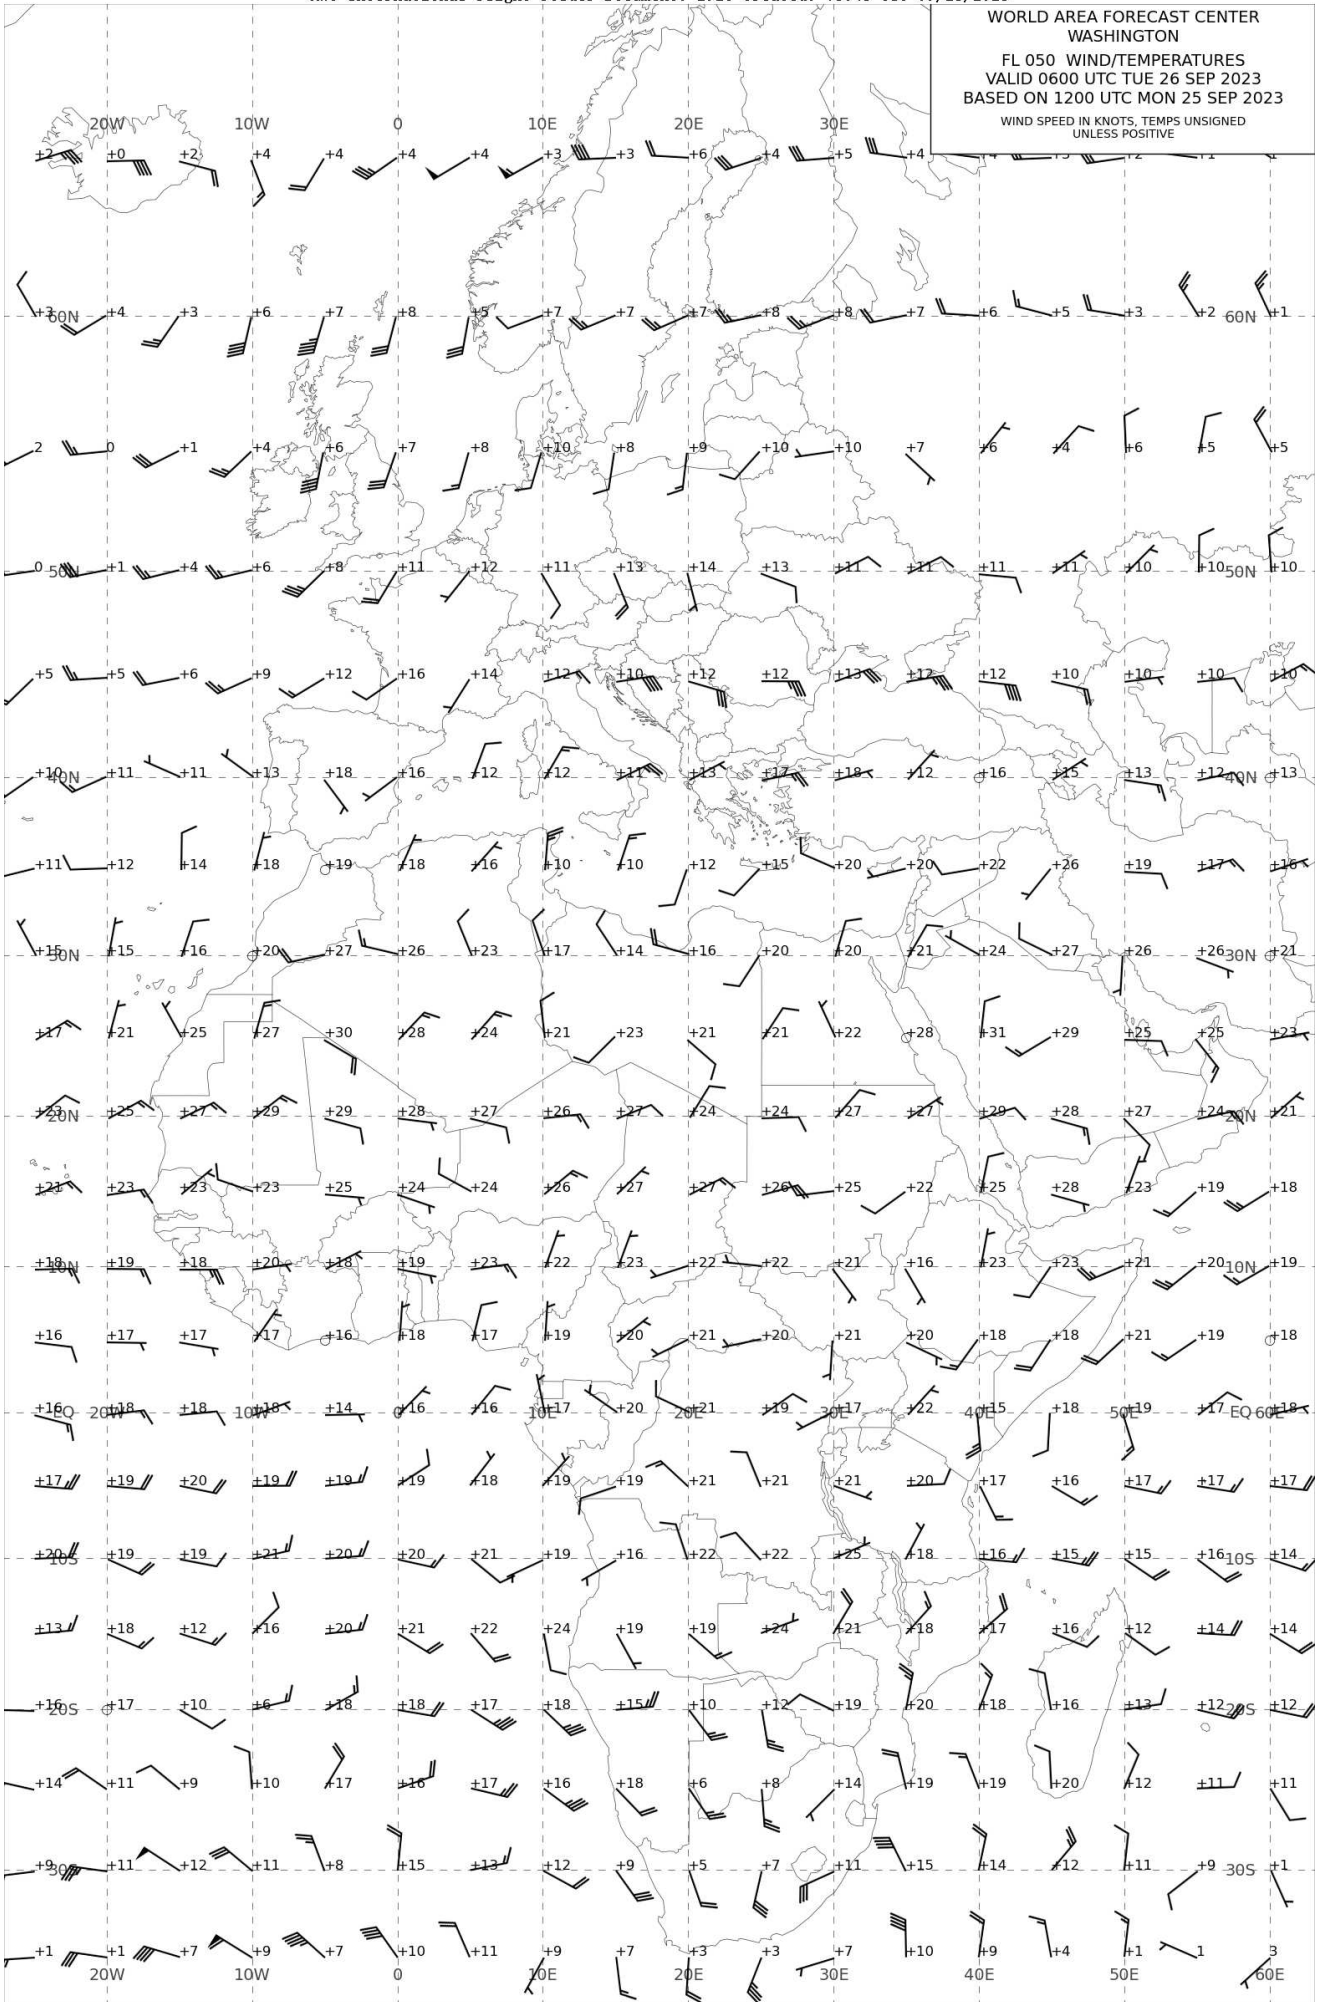 WORLD AREA FORECAST CENTER
WASHINGTON
FL 050 WIND/TEMPERATURES
VALID 0600 UTC TUE 26 SEP 2023
BASED ON 1200 UTC MON 25 SEP 2023
WIND SPEED IN KNOTS, TEMPS UNSIGNED
UNLESS POSITIVE
20W 10W 0 10E 20E 30E
+2 +0 +2 +4 +4 +4 +4 +3 +3 +6 +4 +5 +4
+3 60N +4 +3 +6 +7 +8 +5 +7 +7 +7 +8 +8 +7 +6 +5 +3 +2 60N +1
2 0 +1 +4 +6 +7 +8 +10 +8 +9 +10 +10 +7 +6 +4 +6 +5 +5
0 50N +1 +4 +6 +8 +11 +12 +11 +13 +14 +13 +11 +11 +11 +11 +10 +10 50N +10
+5 +5 +6 +9 +12 +16 +14 +12 +10 +12 +12 +13 +12 +12 +10 +10 +10 +10
+10 40N +11 +11 +13 +18 +16 +12 +12 +11 +13 +17 +18 +12 +16 +15 +13 +12 40N +13
+11 +12 +14 +18 +19 +18 +16 +10 +10 +12 +15 +20 +20 +22 +26 +19 +17 +16
+15 30N +15 +16 +20 +27 +26 +23 +17 +14 +16 +20 +20 +21 +24 +27 +26 +26 30N +21
+17 +21 +25 +27 +30 +28 +24 +21 +23 +21 +21 +22 +28 +31 +29 +25 +25 +23
+23 20N +25 +27 +29 +29 +28 +27 +26 +27 +24 +24 +27 +27 +29 +28 +27 +24 20N +21
+21 +23 +23 +23 +25 +24 +24 +26 +27 +27 +26 +25 +22 +25 +28 +23 +19 +18
+18 10N +19 +18 +20 +18 +19 +23 +22 +23 +22 +22 +21 +16 +23 +23 +21 +20 10N +19
+16 +17 +17 +17 +16 +18 +17 +19 +20 +21 +20 +21 +20 +18 +18 +21 +19 +18
+16 EQ 20W +18 +18 10W +18 +14 0 +16 +16 10E +17 +20 20E +21 +19 30E +17 +22 40E +15 +18 50E +19 +17 EQ 60E +18
+17 +19 +20 +19 +19 +19 +18 +19 +19 +21 +21 +21 +20 +17 +16 +17 +17 +17
+20 10S +19 +19 +21 +20 +20 +21 +19 +16 +22 +22 +25 +18 +16 +15 +15 +16 10S +14
+13 +18 +12 +16 +20 +21 +22 +24 +19 +19 +24 +21 +18 +17 +16 +12 +14 +14
+16 20S +17 +10 +6 +18 +18 +17 +18 +15 +10 +12 +19 +20 +18 +16 +13 +12 20S +12
+14 +11 +9 +10 +17 +16 +17 +16 +18 +6 +8 +14 +19 +19 +20 +12 +11 +11
+9 30S +11 +12 +11 +8 +15 +13 +12 +9 +5 +7 +11 +15 +14 +12 +11 +9 30S +1
+1 +1 +7 +9 +7 +10 +11 +9 +7 +3 +3 +7 +10 +9 +4 +1 1 3
20W 10W 0 10E 20E 30E 40E 50E 60E